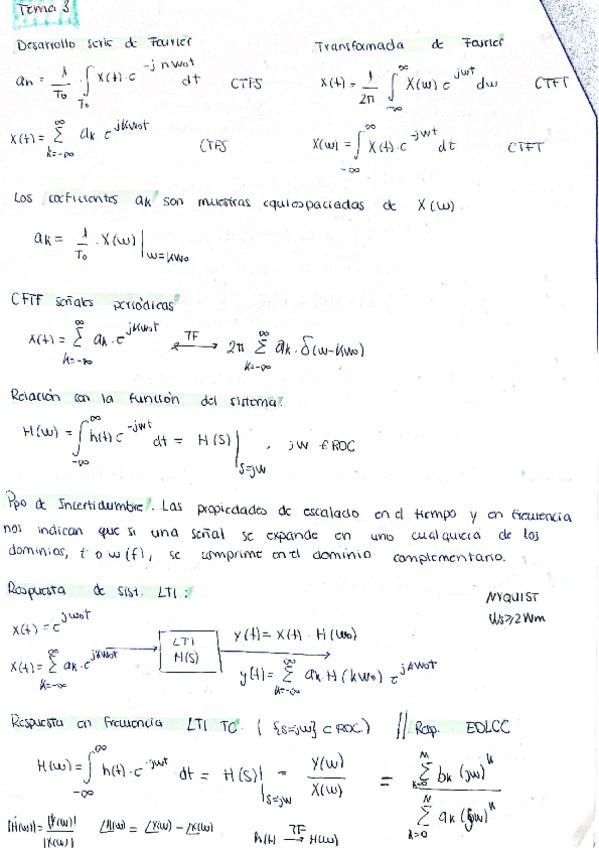 Tema 3
Desarrollo serie de Fourier
an = 1/T₀ · ∫_T₀ x(t)·e^{-jnw₀t} dt CTFS
x(t) = Σ_{k=-∞}^{∞} ak e^{jkw₀t} CTFS
Transformada de Fourier
x(t) = 1/2π ∫_{-∞}^{∞} X(w) e^{jwt} dw CTFT
X(w) = ∫_{-∞}^{∞} x(t)·e^{-jwt} dt CTFT
Los coeficientes ak son muestras equiespaciadas de X(w)
ak = 1/T₀ · X(w)|_{w=kw₀}
CFTF señales periódicas
x(t) = Σ_{k=-∞}^{∞} ak·e^{jkw₀t} ⟷TF 2π Σ_{k=-∞}^{∞} ak·δ(w-kw₀)
Relación con la función del sistema:
H(w) = ∫_{-∞}^{∞} h(t) e^{-jwt} dt = H(S)|_{S=jw} , jw ∈ ROC
Ppo de Incertidumbre. Las propiedades de escalado en el tiempo y en frecuencia
nos indican que si una señal se expande en uno cualquiera de los
dominios, t o w(f), se comprime en el dominio complementario.
Respuesta de Sist. LTI:
NYQUIST
Ws ≥ 2Wm
x(t) = e^{jw₀t}
x(t) = Σ_{k=-∞}^{∞} ak·e^{jkw₀t}
LTI
H(S)
y(t) = x(t)·H(w₀)
y(t) = Σ_{k=-∞}^{∞} ak·H(kw₀) e^{jkw₀t}
Respuesta en frecuencia LTI TC. ( {s=jw} ⊂ ROC) // Resp. EDLCC
H(w) = ∫_{-∞}^{∞} h(t)·e^{-jwt} dt = H(S)|_{S=jw} = Y(w)/X(w) = Σ_{k=0}^{M} bk (jw)^k / Σ_{k=0}^{N} ak (jw)^k
|H(w)| = |Y(w)|/|X(w)| ∠H(w) = ∠Y(w) - ∠X(w) h(t) →TF H(w)